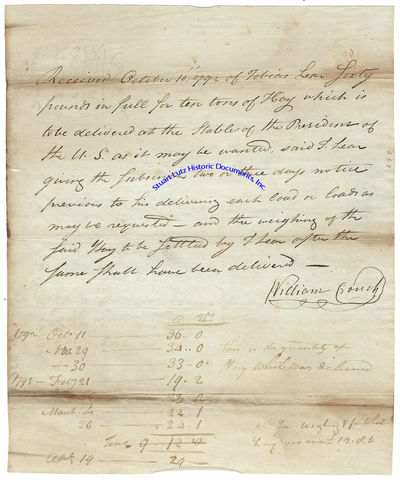 Received October 10th 1792 of Tobias Lear Sixty
pounds in full for ten tons of Hay which is
to be delivered at the Stable of the President of
the U. S. as it may be wanted, said T. Lear
giving the Subscriber two or three days notice
previous to his delivering each load or loads as
may be requested — and the weighing of the
said Hay to be settled by T. Lear after the
same shall have been delivered —
William Couch
Stuart Lutz Historic Documents, Inc.
1792 Oct. 11 — 36..0
Nov. 29 — 34..0 This is the quantity of
— 30 — 33..0 Hay which was delivered
1793 — Feby 21 — 19.2
March 4 — 22.1
26 — 24.1 weighing
Tons 9 — 12
Apl. 19 — 29